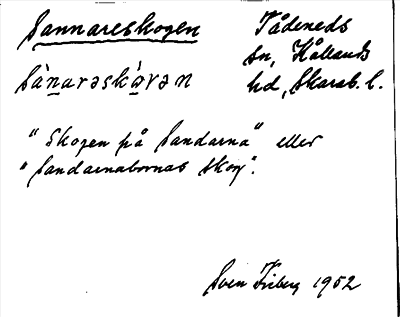 Sannareskogen
Tådeneds
sn, Kållands
hd, Skarab. l.
sànarəskògən
"Skogen på Sandarna" eller
"Sandarnabornas skog".
Sven Friberg 1952